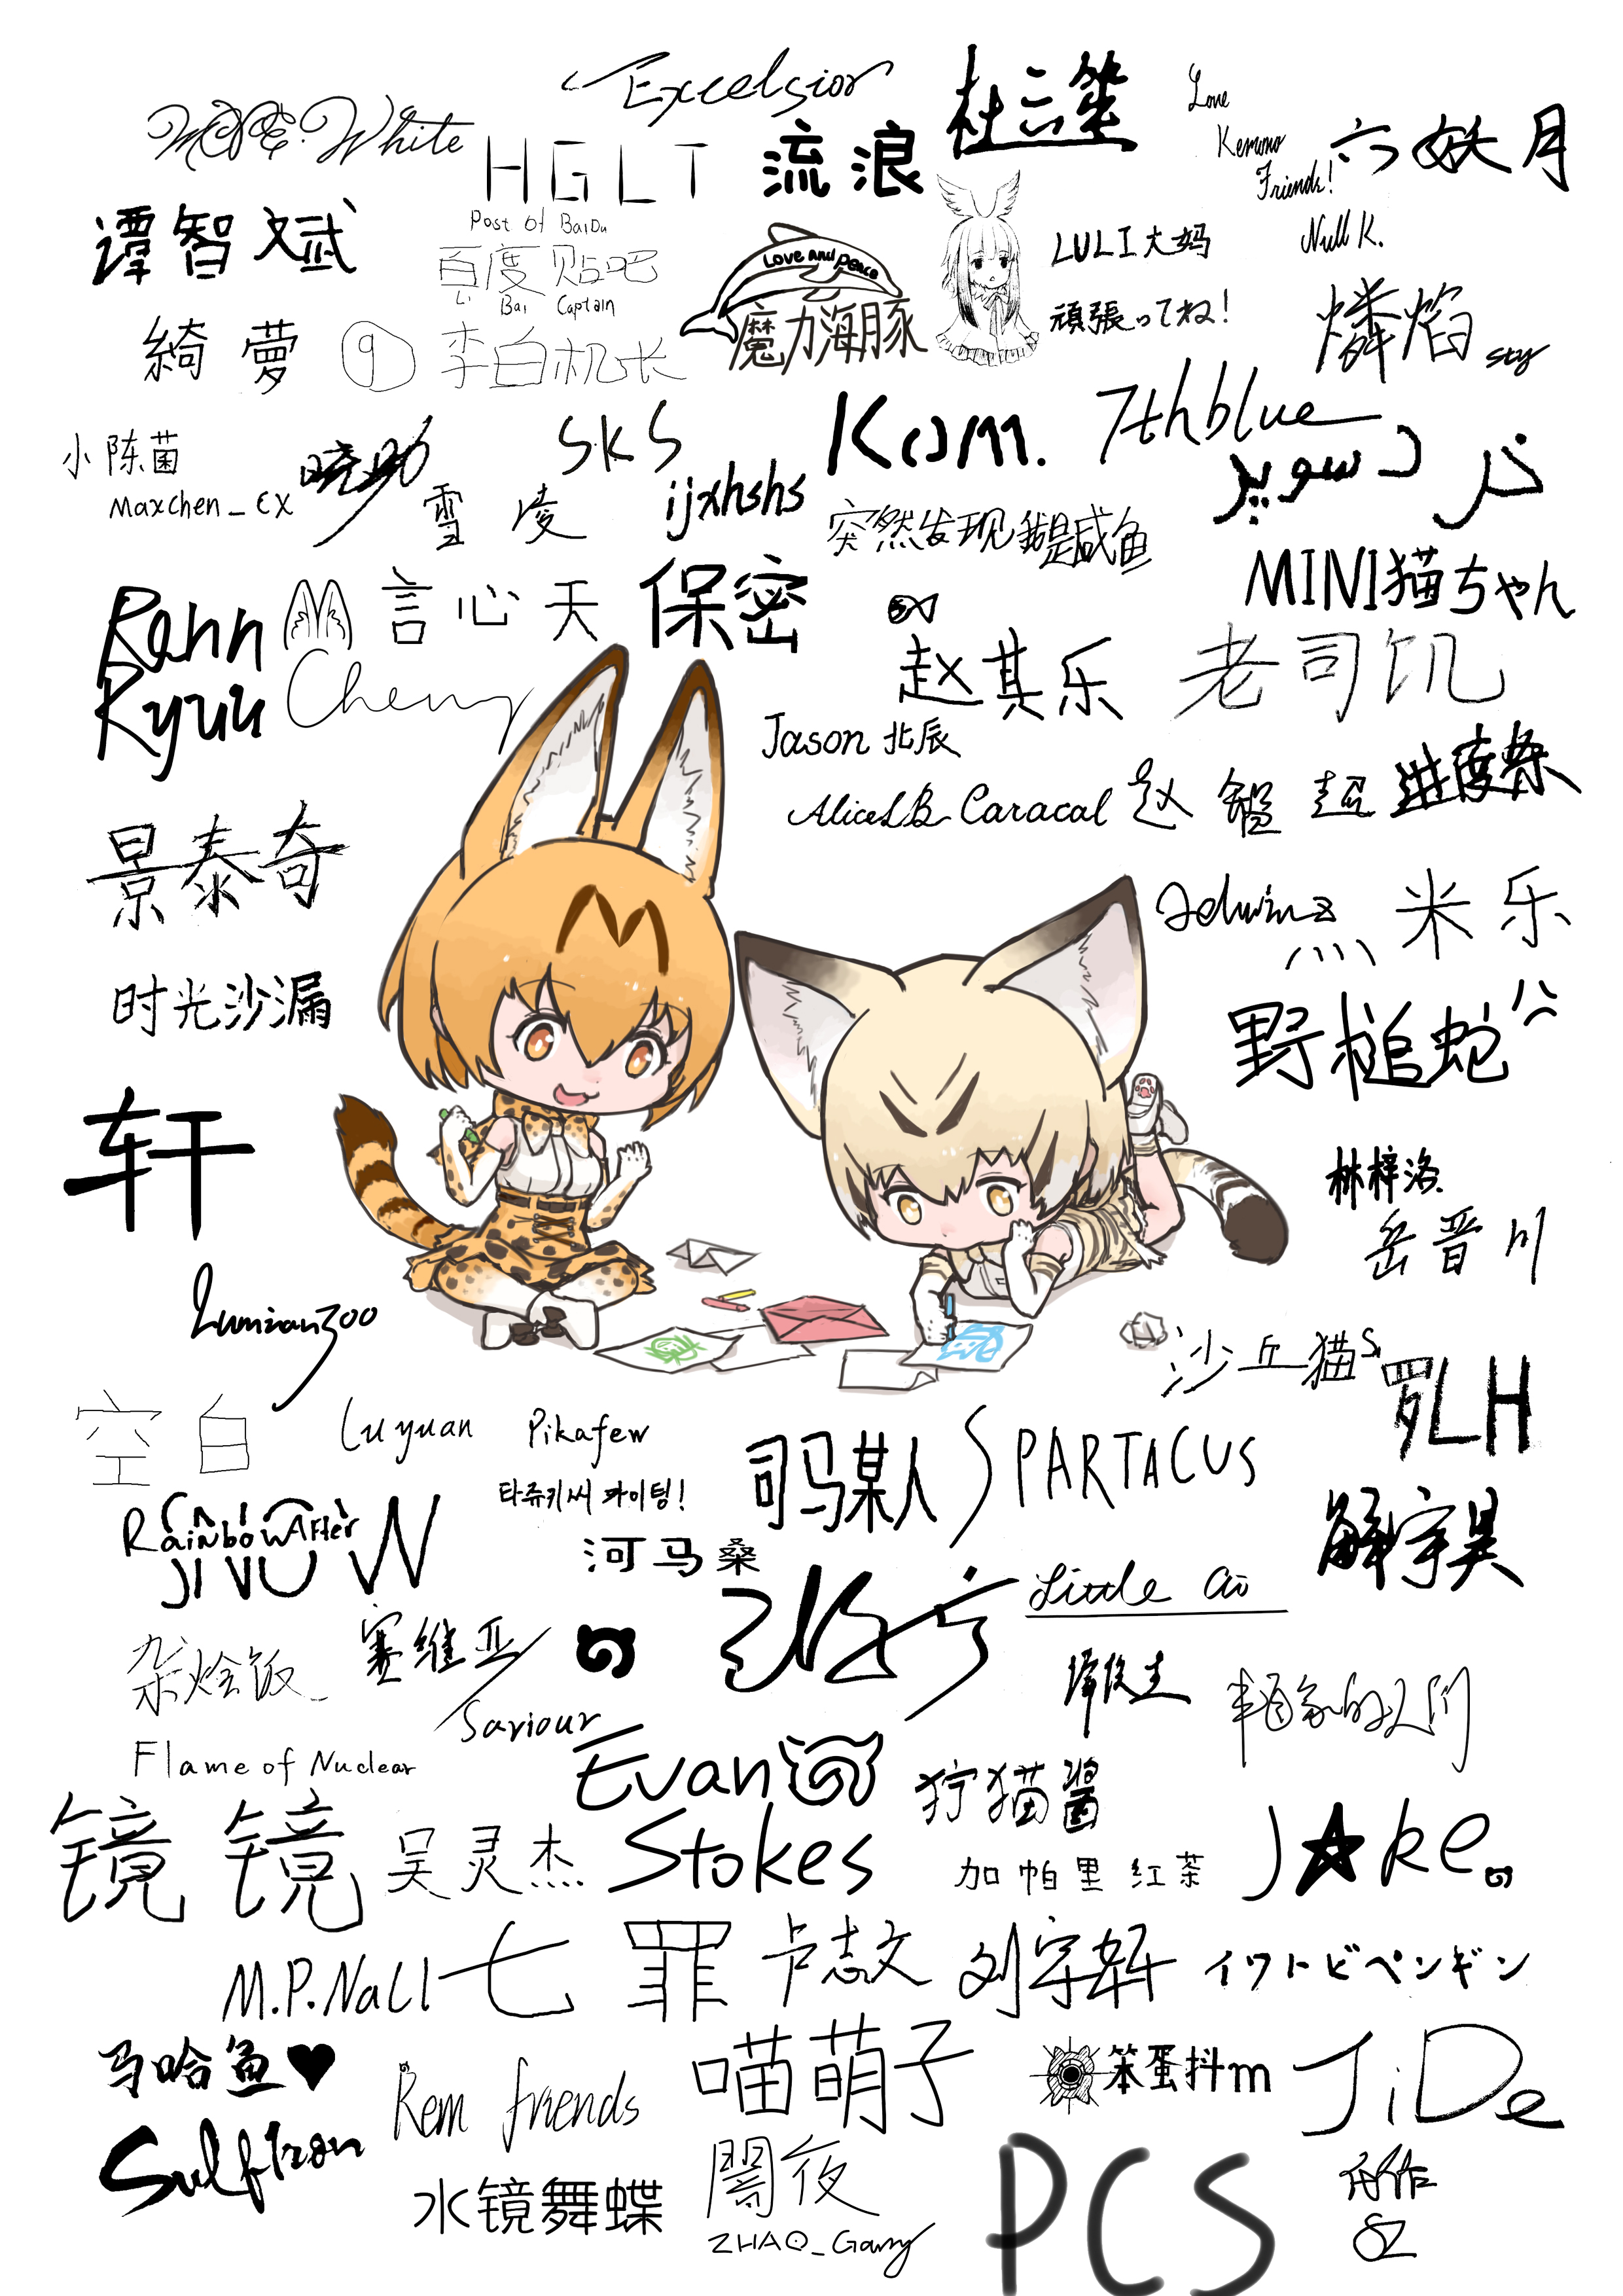 Excelsior
White
HGLT
流浪
杜三笙
Love
Kemono
Friends!
六妖月
谭智斌
Post of BaiDu
百度贴吧
Bai Captain
⑨ 李白机长
Love and peace
魔力海豚
LULI大妈
頑張ってね!
Null K.
燐焰
sty
綺夢
小陈菌
Maxchen_CX
晓助
雪凌
SKS
ijxhshs
Kom.
7thblue
突然发现我是咸鱼
MINI猫ちゃん
Rann
Kyuu
言心天
Cheng
保密
赵其乐
老司饥
Jason 北辰
AliceLB Caracal
赵锟超
进度条
景泰奇
米乐
时光沙漏
野槌蛇
轩
林梓洛.
岳晋川
沙丘猫
罗LH
空白
Luyuan
Pikafew
타쥬키씨 파이팅!
司马某人
SPARTACUS
RainbowAfter
JINUW
河马桑
解宇昊
Little Ai
杂烩饭
赛维亚
Saviour
Flame of Nuclear
Evan
Stokes
狞猫酱
镜镜
吴灵杰
加帕里红茶
J★ke.
M.P.Nall
七罪
卢志文
刘宇轩
イワトビペンギン
马哈鱼♥
Rem friends
喵萌子
笨蛋抖m
JiDe
SulfIron
水镜舞蝶
闇夜
ZHAO_Gang
PCS